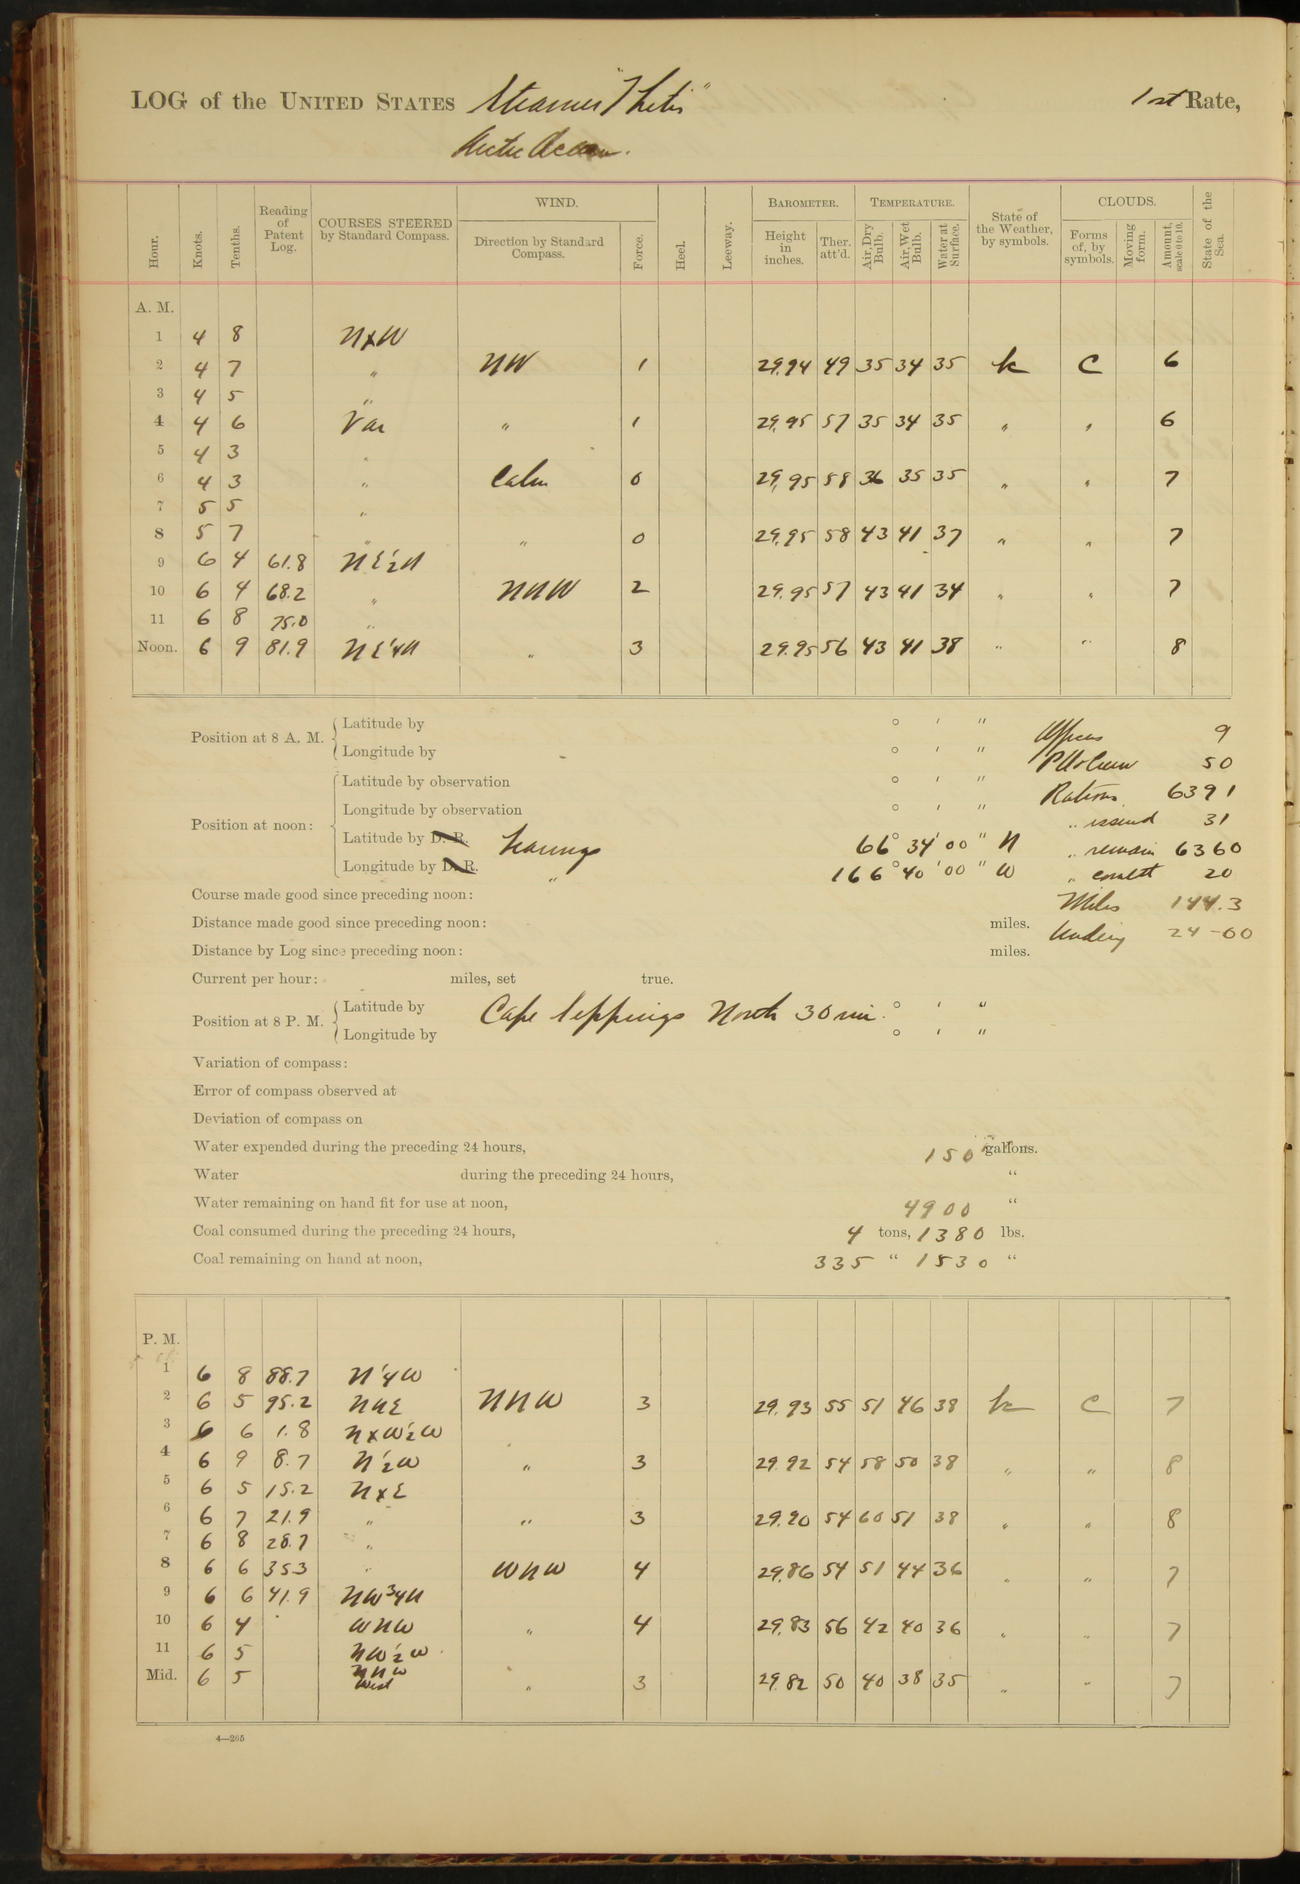 LOG of the UNITED STATES Steamer "Thetis" 1st Rate,
Arctic Ocean.
Hour. Knots. Tenths. Reading of Patent Log. COURSES STEERED by Standard Compass. WIND. Direction by Standard Compass. Force. Heel. Leeway. BAROMETER. Height in inches. Ther. att'd. TEMPERATURE. Air, Dry Bulb. Air, Wet Bulb. Water at Surface. State of the Weather, by symbols. CLOUDS. Forms of, by symbols. Moving form. Amount, scale 0 to 10. State of the Sea.
A. M.
1 4 8 NxW
2 4 7 " NW 1 29.94 49 35 34 35 bc C 6
3 4 5 "
4 4 6 Var " 1 29.95 57 35 34 35 " " 6
5 4 3 "
6 4 3 " Calm 0 29.95 58 36 35 35 " " 7
7 5 5 "
8 5 7 " " 0 29.95 58 43 41 37 " " 7
9 6 4 61.8 NE½N
10 6 4 68.2 " NNW 2 29.95 57 43 41 34 " " 7
11 6 8 75.0 "
Noon. 6 9 81.9 NE¼N " 3 29.95 56 43 41 38 " " 8
Position at 8 A. M. Latitude by ° ' "
Longitude by ° ' "
Officers 9
P.O.&Crew 50
Position at noon: Latitude by observation ° ' "
Rations 6391
Longitude by observation ° ' "
" issued 31
Latitude by D. R. bearings 66° 34' 00" N
" remain 6360
Longitude by D. R. " 166° 40' 00" W
" comutt 20
Course made good since preceding noon:
Miles 144.3
Distance made good since preceding noon: miles.
Undwy 24-00
Distance by Log since preceding noon: miles.
Current per hour: miles, set true.
Position at 8 P. M. Latitude by Cape Seppings North 30 mi. ° ' "
Longitude by ° ' "
Variation of compass:
Error of compass observed at
Deviation of compass on
Water expended during the preceding 24 hours, 150 gallons.
Water during the preceding 24 hours, "
Water remaining on hand fit for use at noon, 4900 "
Coal consumed during the preceding 24 hours, 4 tons, 1380 lbs.
Coal remaining on hand at noon, 335 " 1530 "
P. M.
1 6 8 88.7 N¼W
2 6 5 95.2 NNE NNW 3 29.93 55 51 46 38 bc C 7
3 6 6 1.8 NxW½W
4 6 9 8.7 N½W " 3 29.92 54 58 50 38 " " 8
5 6 5 15.2 NxE
6 6 7 21.9 " " 3 29.90 54 60 51 38 " " 8
7 6 8 28.7 "
8 6 6 35.3 " WNW 4 29.86 54 51 44 36 " " 7
9 6 6 41.9 NW¾N
10 6 4 WNW " 4 29.83 56 42 40 36 " " 7
11 6 5 NW½W
Mid. 6 5 NNW West " 3 29.82 50 40 38 35 " " 7
4—205